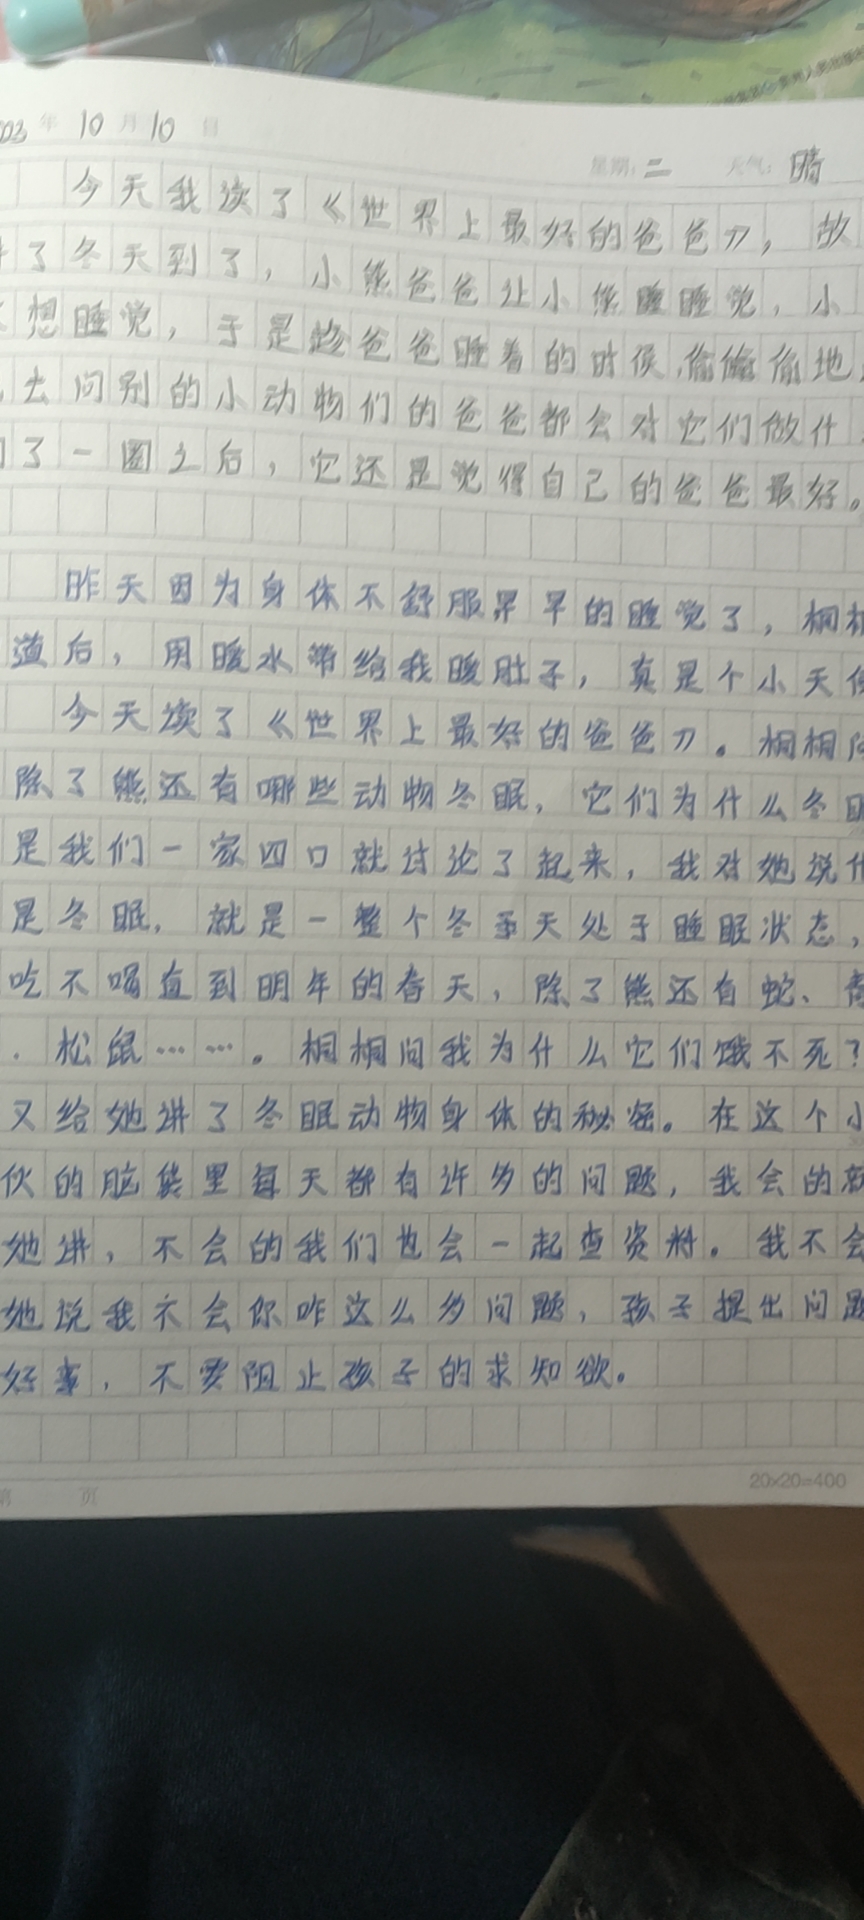 03 年 10 月 10 日
星期：二 天气：晴
今天我读了《世界上最好的爸爸》，故
了冬天到了，小熊爸爸让小熊睡睡觉，小
想睡觉，于是趁爸爸睡着的时候，偷偷偷地
去问别的小动物们的爸爸都会对它们做什
了一圈之后，它还是觉得自己的爸爸最好。
昨天因为身体不舒服早早的睡觉了，桐桐
道后，用暖水带给我暖肚子，真是个小天使
今天读了《世界上最好的爸爸》。桐桐问
除了熊还有哪些动物冬眠，它们为什么冬眠
是我们一家四口就讨论了起来，我对她说什
是冬眠，就是一整个冬季天处于睡眠状态，
吃不喝直到明年的春天，除了熊还有蛇、青
、松鼠……。桐桐问我为什么它们饿不死？
又给她讲了冬眠动物身体的秘密。在这个小
伙的脑袋里每天都有许多的问题，我会的就
她讲，不会的我们也会一起查资料。我不会
她说我不会你咋这么多问题，孩子提出问题
好事，不要阻止孩子的求知欲。
第 页
20×20=400